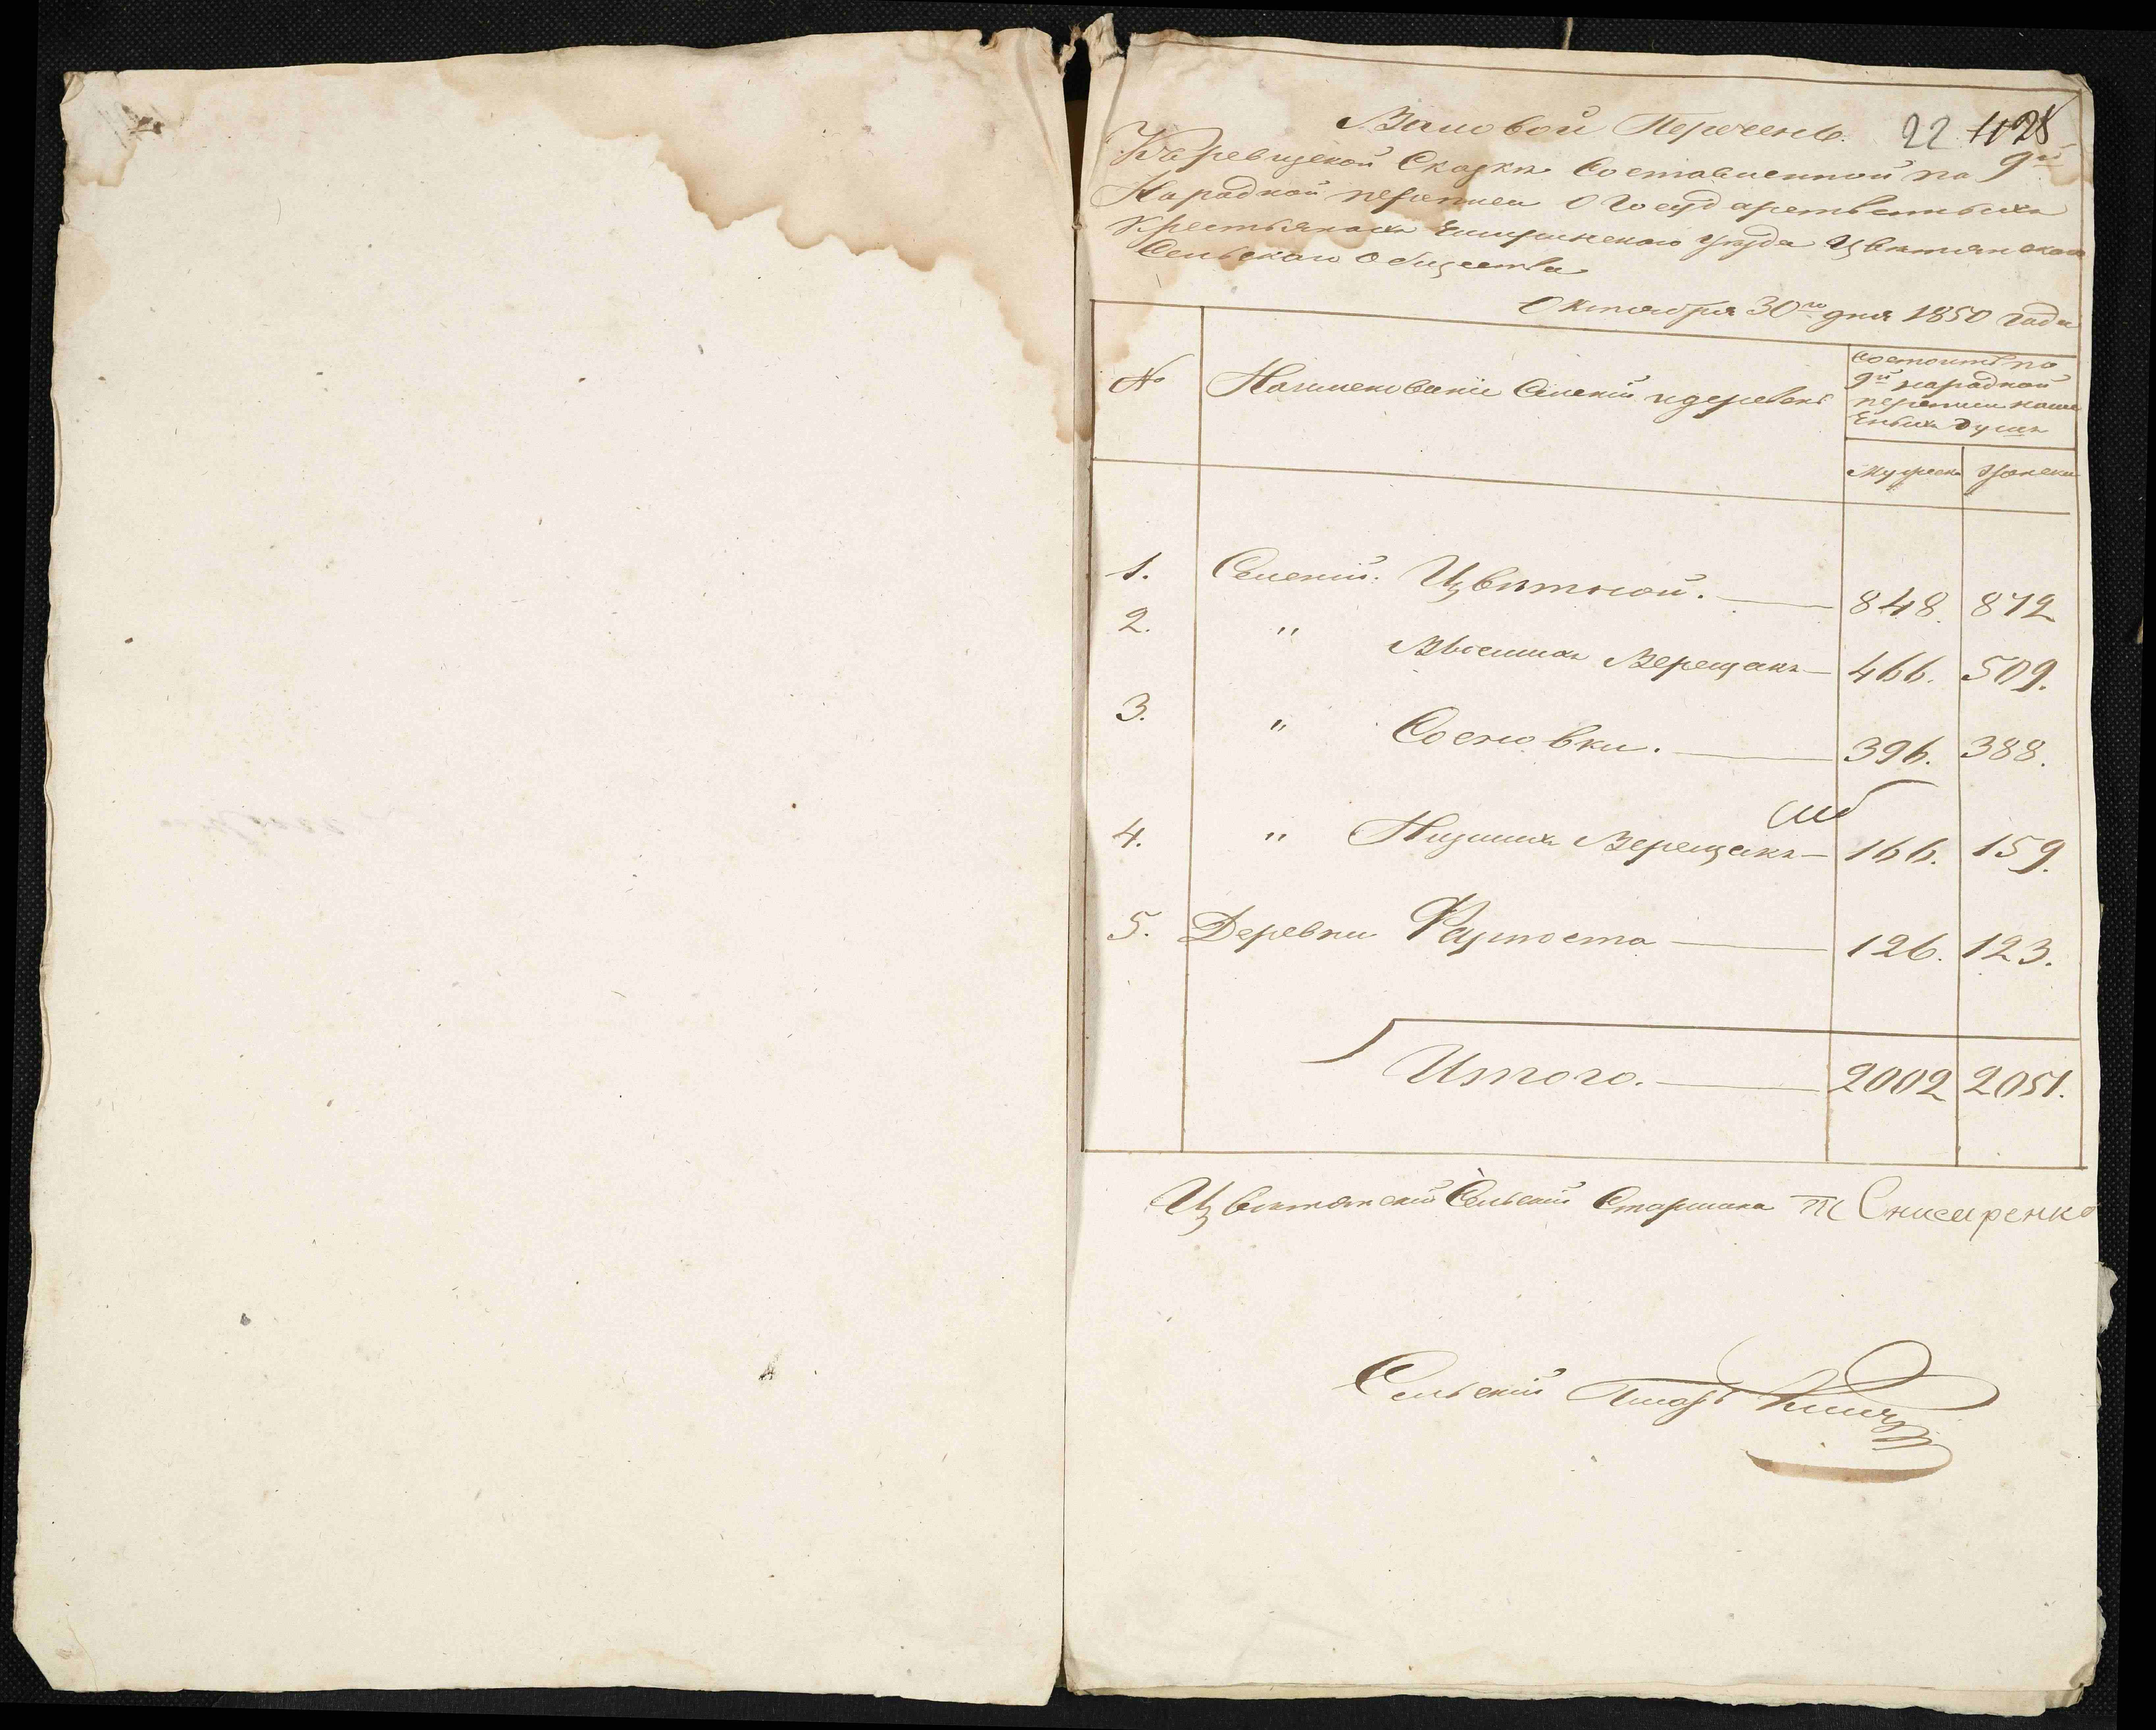 Валовой Перечень. 22 28
Къ ревизской Сказки Составленной по 9й
Народной переписи О Государственныхъ
Крестьянахъ Чигиринскаго уезда Цвѣтянскаго
Сельскаго Общества
Октября 30го дня 1850 года
№ Наименованіе Селеній и деревень
Состоитъ по
9й народной
переписи налич
Енныхъ душъ
Мужеска Женска
1. Селеній. Цвѣтной. — 848. 872
2. " Высшихъ Верещакъ — 466. 509.
3. " Сосновки. — 396. 388.
4. " Низшихъ Верещакъ — 166. 159.
5. Деревни — 126. 123.
Итого. — 2002 2051.
Цвѣтянскій Сельскій Старшина
Сельскій Писарь